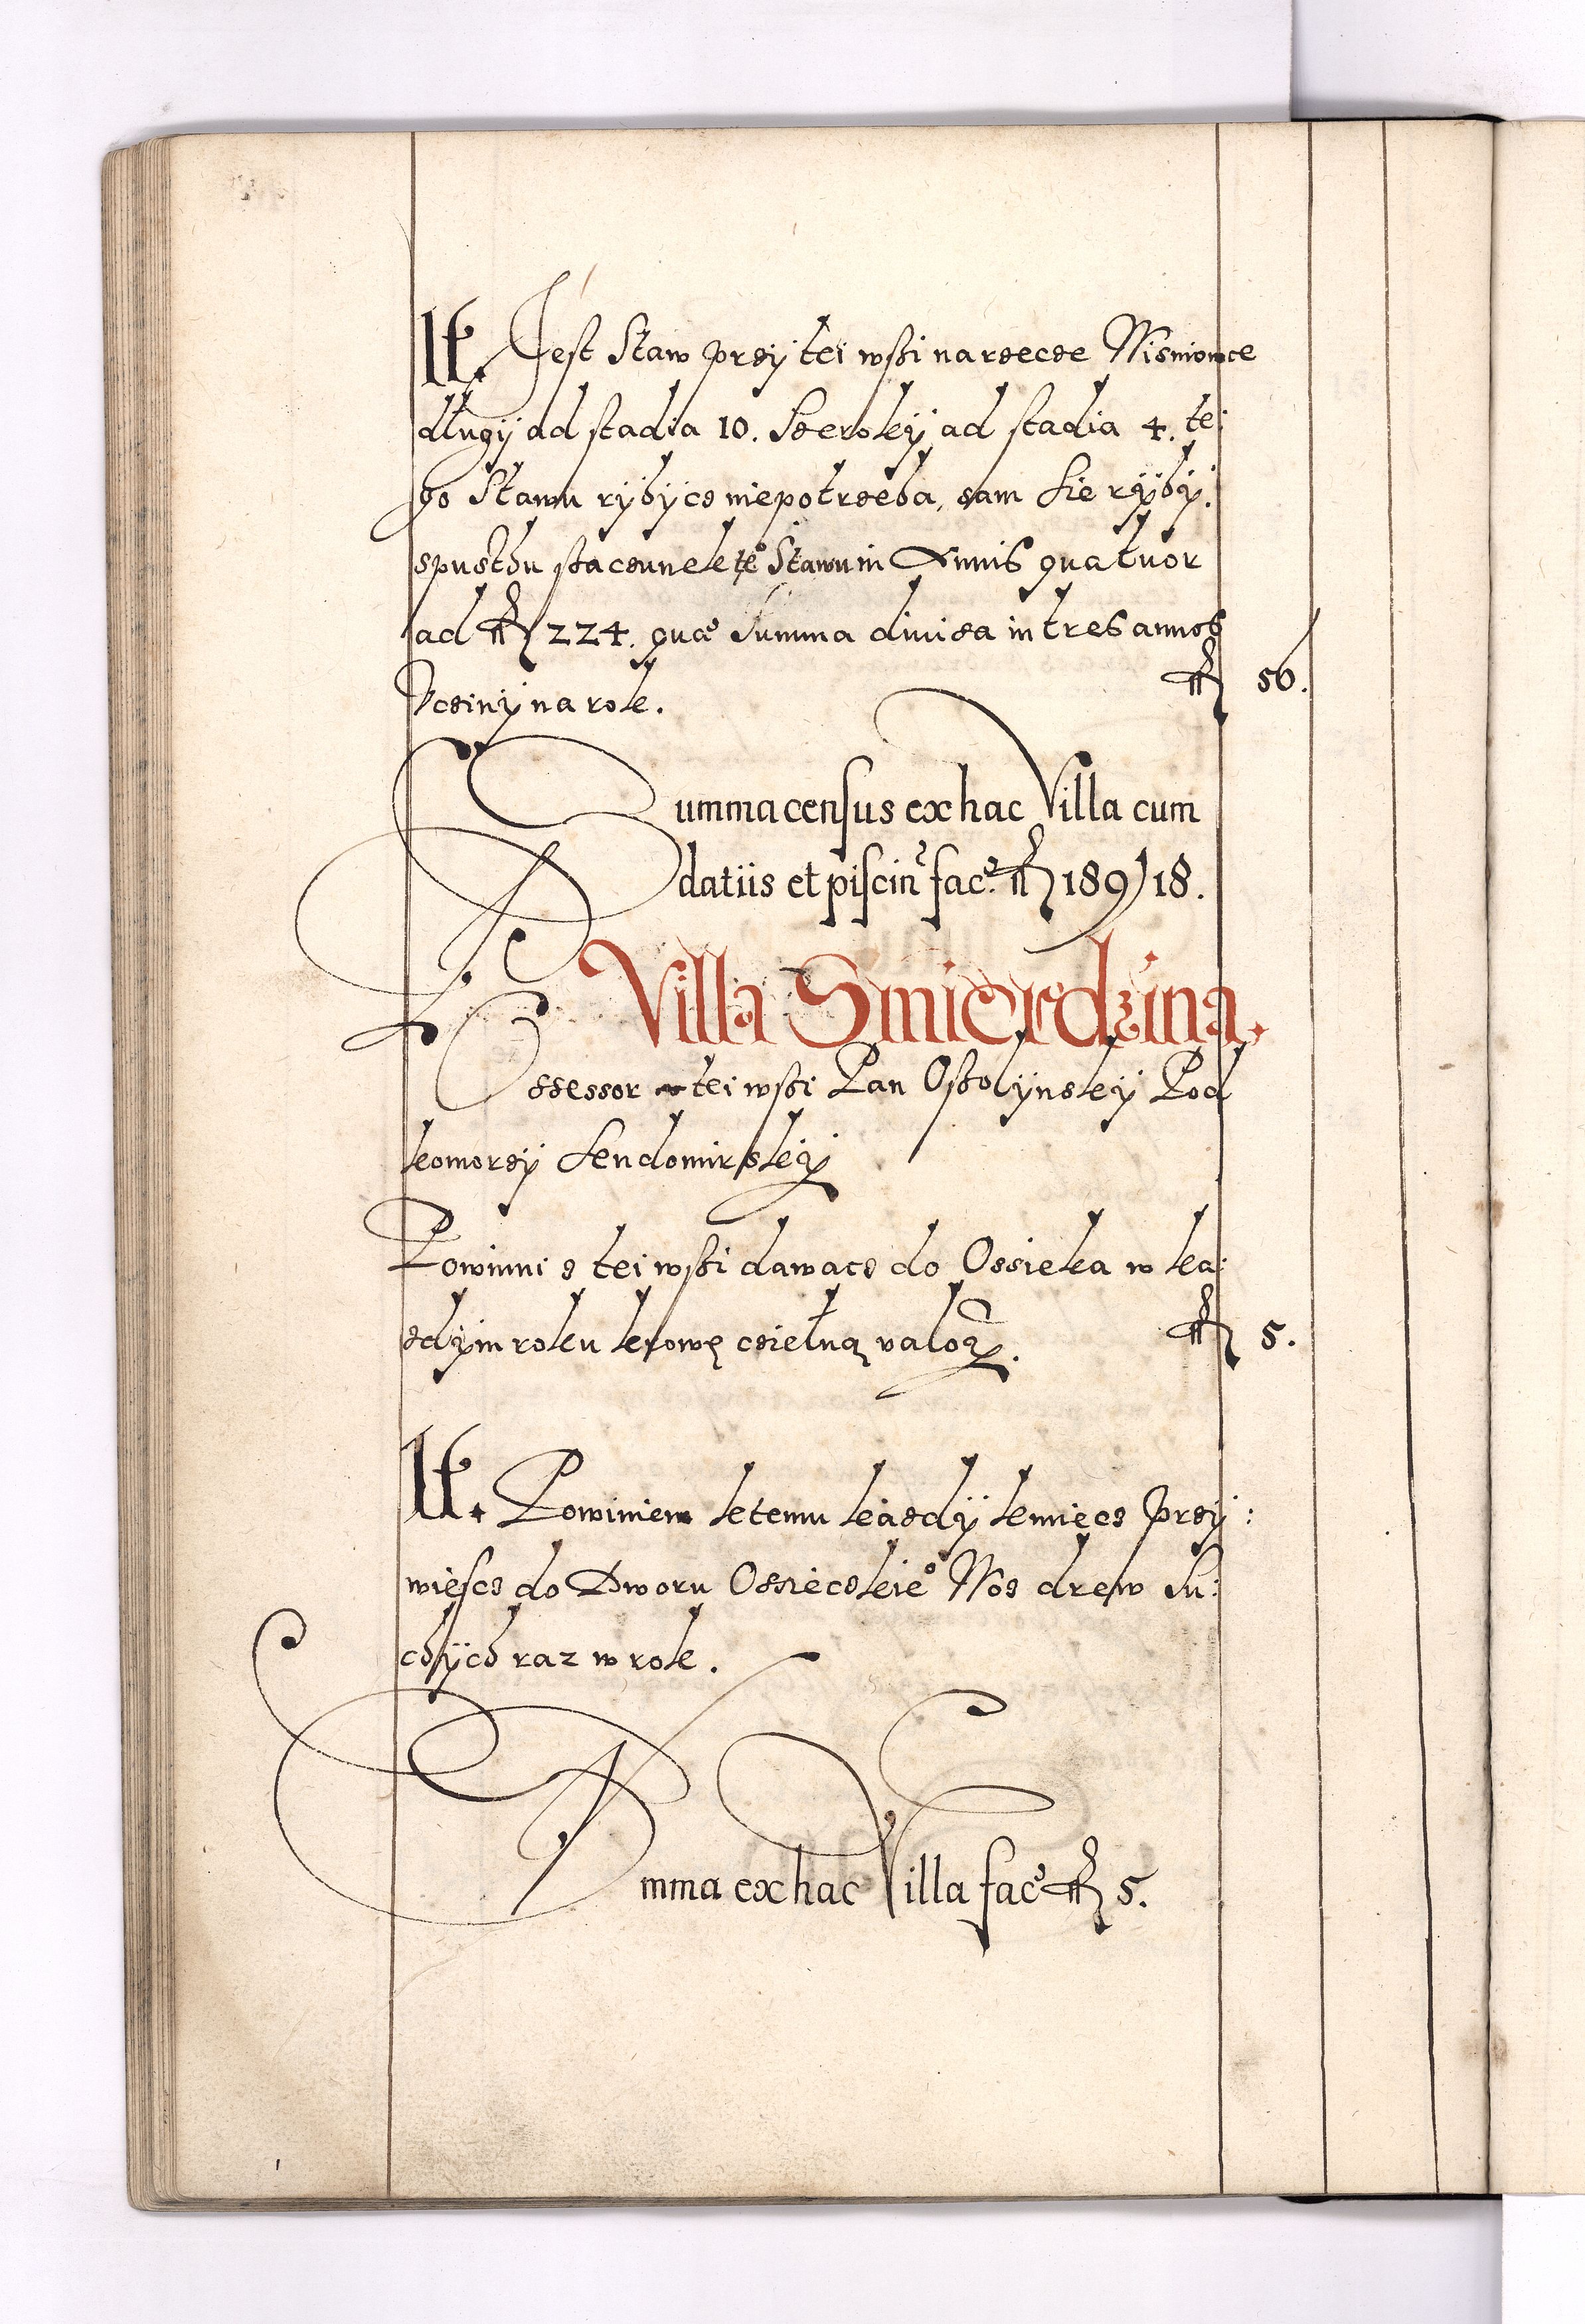 It. Jest Staw przÿ tei wsſi na rzecze Wisniowce
długÿ ad stadia 10. Szerokÿ ad stadia 4. te:
go Stawu rÿbÿcz niepotrzeba, sam Sie rÿbÿ.
spustku sſaczunek te° Stawu in Annis quatuor
ad fl 224. quæ Summa diuisa in tres annos
Vczinÿ na rok. fl 56.
Summa census ex hac Villa cum
datiis et piscin fac. fl 189/18.
Villa Smierdzina.
Possessor tei wsſi Pan Osſolÿnskÿ Pod
komorzÿ Sendomirskÿ
Powinni z tei wsſi dawacz do Ossieka w ka:
zdÿm roku krowę czielną valoris. fl 5.
It. Powinien ktemu kazdÿ kmiecz przÿ:
wiescz do Dworu Ossieczkie° Woz drew Su:
chÿch raz w rok.
Summa ex hac Villa fac fl 5.